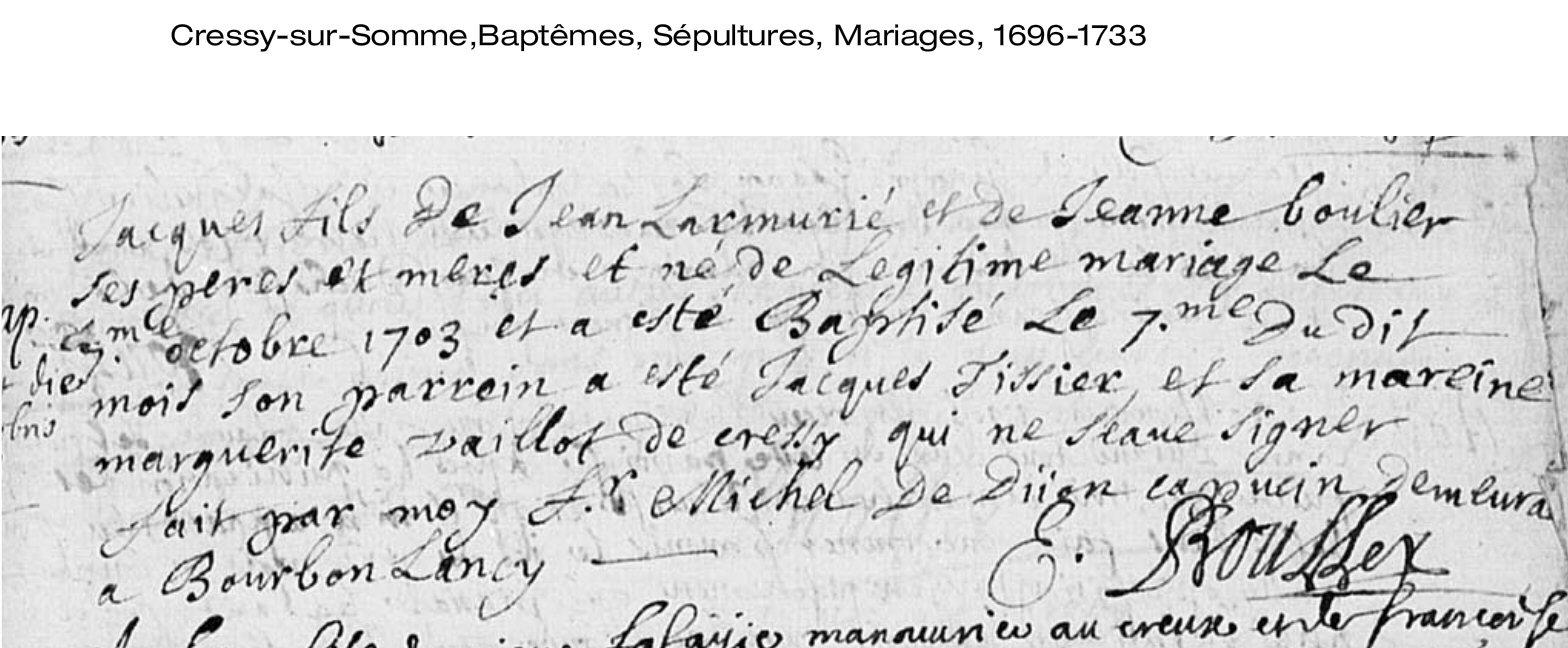 Cressy-sur-Somme,Baptêmes, Sépultures, Mariages, 1696-1733
Jacques fils De Jean Larmurié et de Jeanne boulier
ses peres et meres et né de Legitime mariage Le
octobre 1703 et a esté Baptisé Le 7.me Du dit
mois son parrein a esté Jacques Tissier et sa mareine
marguerite vaillot de cressy qui ne seaue signer
fait par moy f.r Michel De Diion capucin demeura
a Bourbon Lancy
manouurier au creux et de francoise